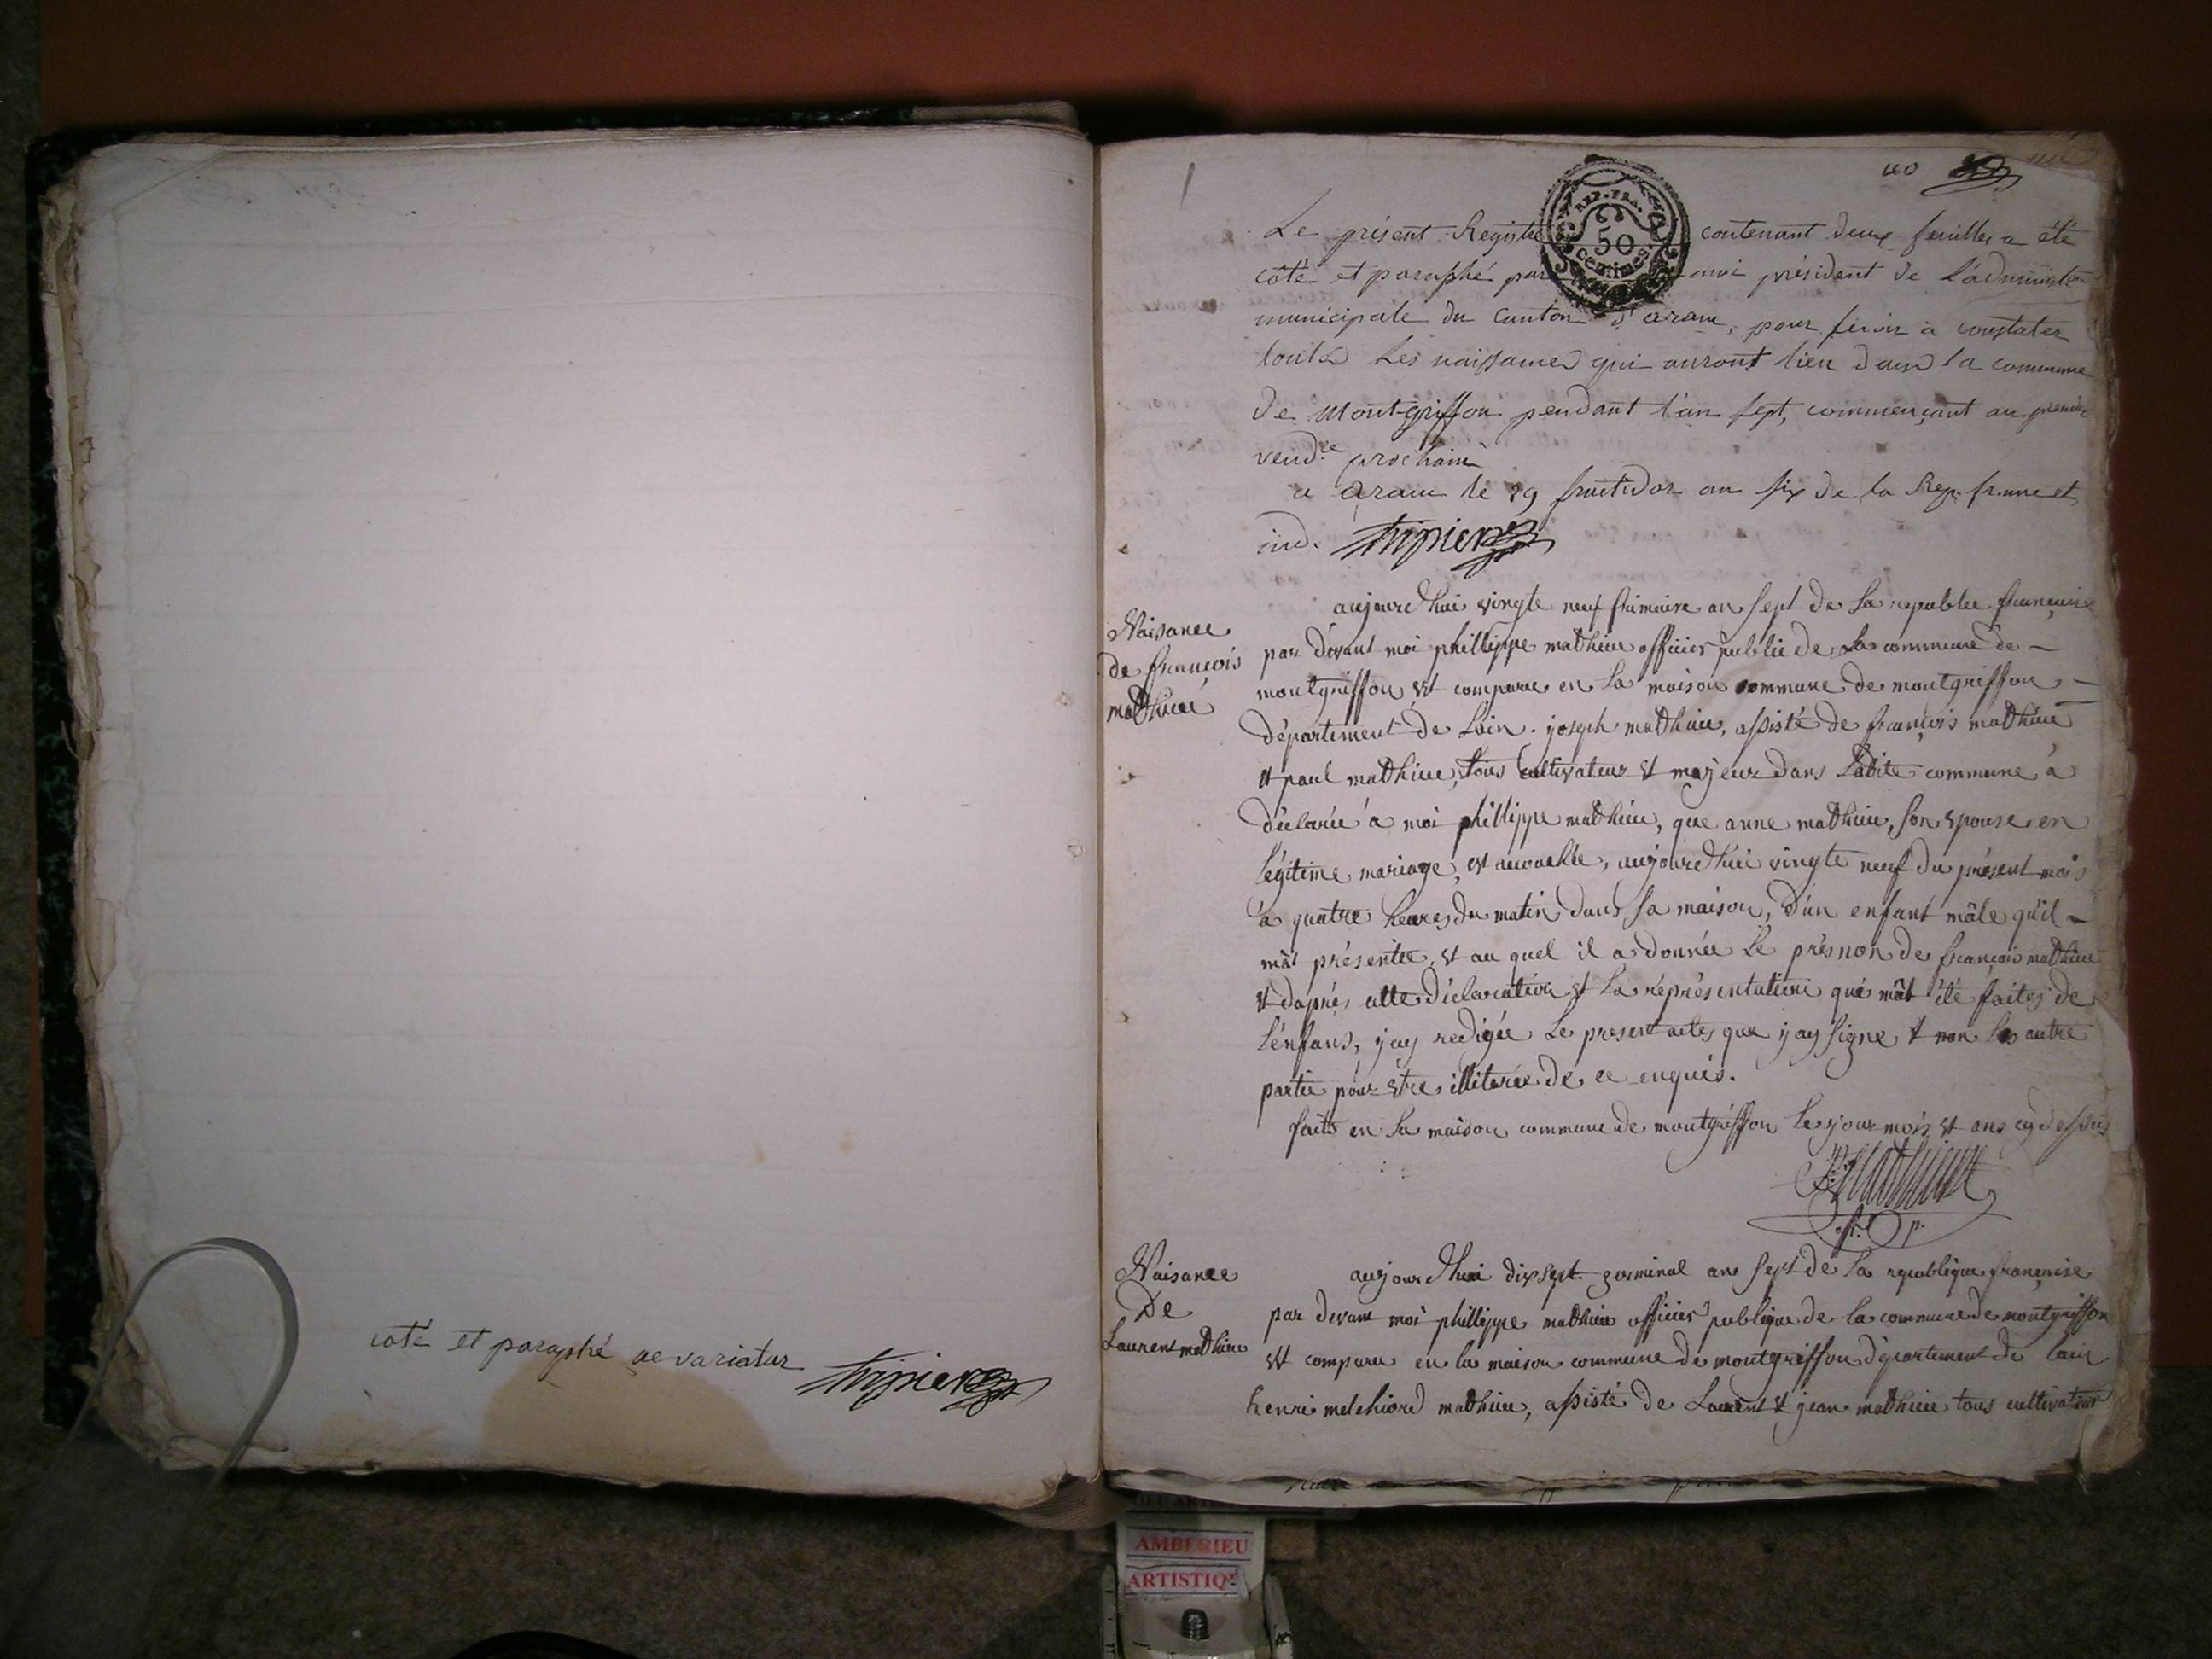 coté et paraphé ne variatur tripier
uo
REP. FRA.
50
centimes
Le présent Registre contenant deux feuilles a été
coté et paraphé par moi président de l'administon
municipale du Canton d'aranc, pour servir à constater
toutes les naissances qui auront lieu dans la commune
de montgriffon pendant l'an sept, commençant au premier
vendre prochain
a aranc le 29 fructidor an six de la Rep. franne et
ind. tripier
Naisance
de françois
mathieu
aujourd'huei vingte neuf frimaire an sept de la republee françaice
par devant moi phillippe mathieu officier publie de la commune de -
montgriffon est comparue en la maison commune de montgriffon -
département de Lain. joseph mathieu, assisté de françois mathieu
et paul mathieu, tous cultivateur et majeur dans Ladite commune à
déclarée à moi phillippe mathieu, que anne mathieu, son epouse en
légitime mariage, est acouchée, aujourd'huei vingte neuf du présent mois
à quatre heures du matin dans sa maison, d'un enfant mâle qu'il -
mât présentée, et au quel il a donnée le présnon de françois mathieu
et daprés cette déclaration et la répréséntation qui mât été faites de
l'énfans, j'ay redigée Le present actes que j'ay signe et non les autre
partie pour etre illiterée de ce enquis.
faits en la maison commune de montgriffon les jour mois et ans cy dessus
P. Mathieu
off. p.
Naisance
De
Laurent mathieu
aujourd'huei dix sept germinal an sept de la republique françaice
par devant moi phillippe mathieu officier publique de la commune de montgriffon
est comparu en la maison commune de montgriffon département de lain
henri melchiord mathieu, assisté de Laurent et jean mathieu tous cultivateur
AMBERIEU
ARTISTIQ